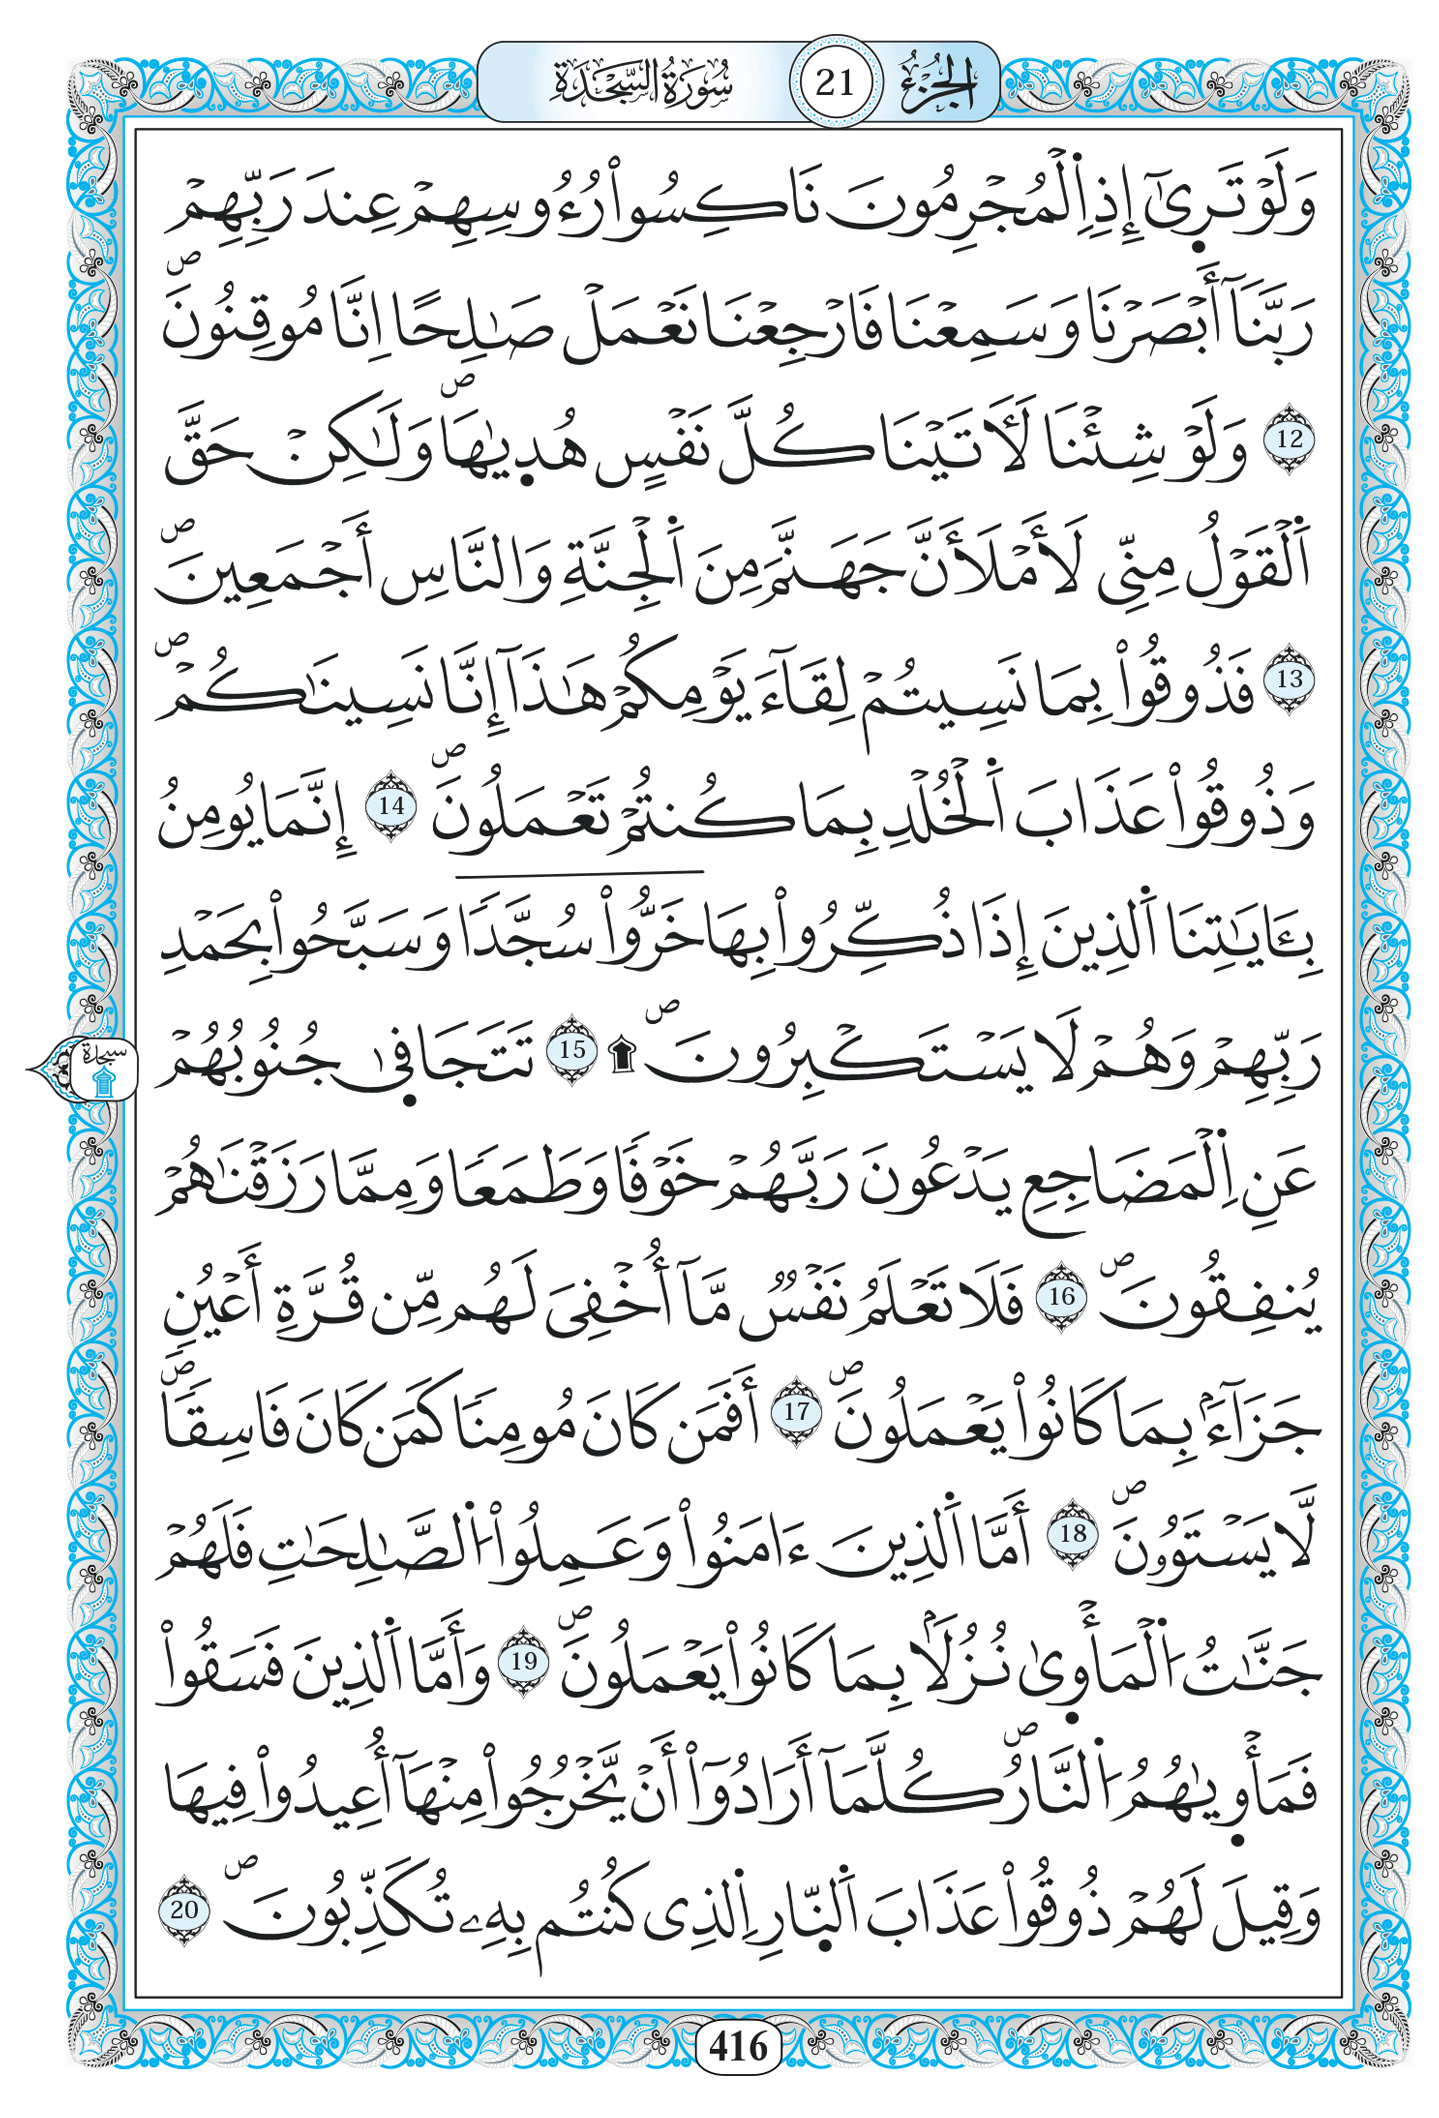 الجُزْءُ 21 سُورَةُ السَّجْدَةِ
وَلَوْ تَر۪يٰٓ إِذِ اِ۬لْمُجْرِمُونَ نَاكِسُواْ رُءُوسِهِمْ عِندَ رَبِّهِمْ
رَبَّنَآ أَبْصَرْنَا وَسَمِعْنَا فَارْجِعْنَا نَعْمَلْ صَٰلِحًا اِنَّا مُوقِنُونَۖ
12 وَلَوْ شِئْنَا لَأَتَيْنَا كُلَّ نَفْسٍ هُد۪يٰهَاۖ وَلَٰكِنْ حَقَّ
اَ۬لْقَوْلُ مِنِّى لَأَمْلَأَنَّ جَهَنَّمَ مِنَ اَ۬لْجِنَّةِ وَالنَّاسِ أَجْمَعِينَۖ
13 فَذُوقُواْ بِمَا نَسِيتُمْ لِقَآءَ يَوْمِكُمْ هَٰذَآ إِنَّا نَسِينَٰكُمْۖ
وَذُوقُواْ عَذَابَ اَ۬لْخُلْدِ بِمَا كُنتُمْ تَعْمَلُونَۖ 14 إِنَّمَا يُومِنُ
بِـَٔايَٰتِنَا اَ۬لذِينَ إِذَا ذُكِّرُواْ بِهَا خَرُّواْ سُجَّدٗا وَسَبَّحُواْ بِحَمْدِ
رَبِّهِمْ وَهُمْ لَا يَسْتَكْبِرُونَۖ ۩ 15 تَتَجَاف۪يٰ جُنُوبُهُمْ
سجدة
عَنِ اِ۬لْمَضَاجِعِ يَدْعُونَ رَبَّهُمْ خَوْفٗا وَطَمَعٗا وَمِمَّا رَزَقْنَٰهُمْ
يُنفِقُونَۖ 16 فَلَا تَعْلَمُ نَفْسٞ مَّآ أُخْفِىَ لَهُم مِّن قُرَّةِ أَعْيُنٖ
جَزَآءَۢ بِمَا كَانُواْ يَعْمَلُونَۖ 17 أَفَمَن كَانَ مُومِنٗا كَمَن كَانَ فَاسِقٗاۖ
لَّا يَسْتَوُۥنَۖ 18 أَمَّا اَ۬لذِينَ ءَامَنُواْ وَعَمِلُواْ اُ۬لصَّٰلِحَٰتِ فَلَهُمْ
جَنَّٰتُ اُ۬لْمَأْو۪يٰ نُزُلَۢا بِمَا كَانُواْ يَعْمَلُونَۖ 19 وَأَمَّا اَ۬لذِينَ فَسَقُواْ
فَمَأْو۪يٰهُمُ اُ۬لنَّارُۖ كُلَّمَآ أَرَادُوٓاْ أَنْ يَّخْرُجُواْ مِنْهَآ أُعِيدُواْ فِيهَا
وَقِيلَ لَهُمْ ذُوقُواْ عَذَابَ اَ۬لنّ۪ارِ اِ۬لذِى كُنتُم بِهِۦ تُكَذِّبُونَۖ 20
416